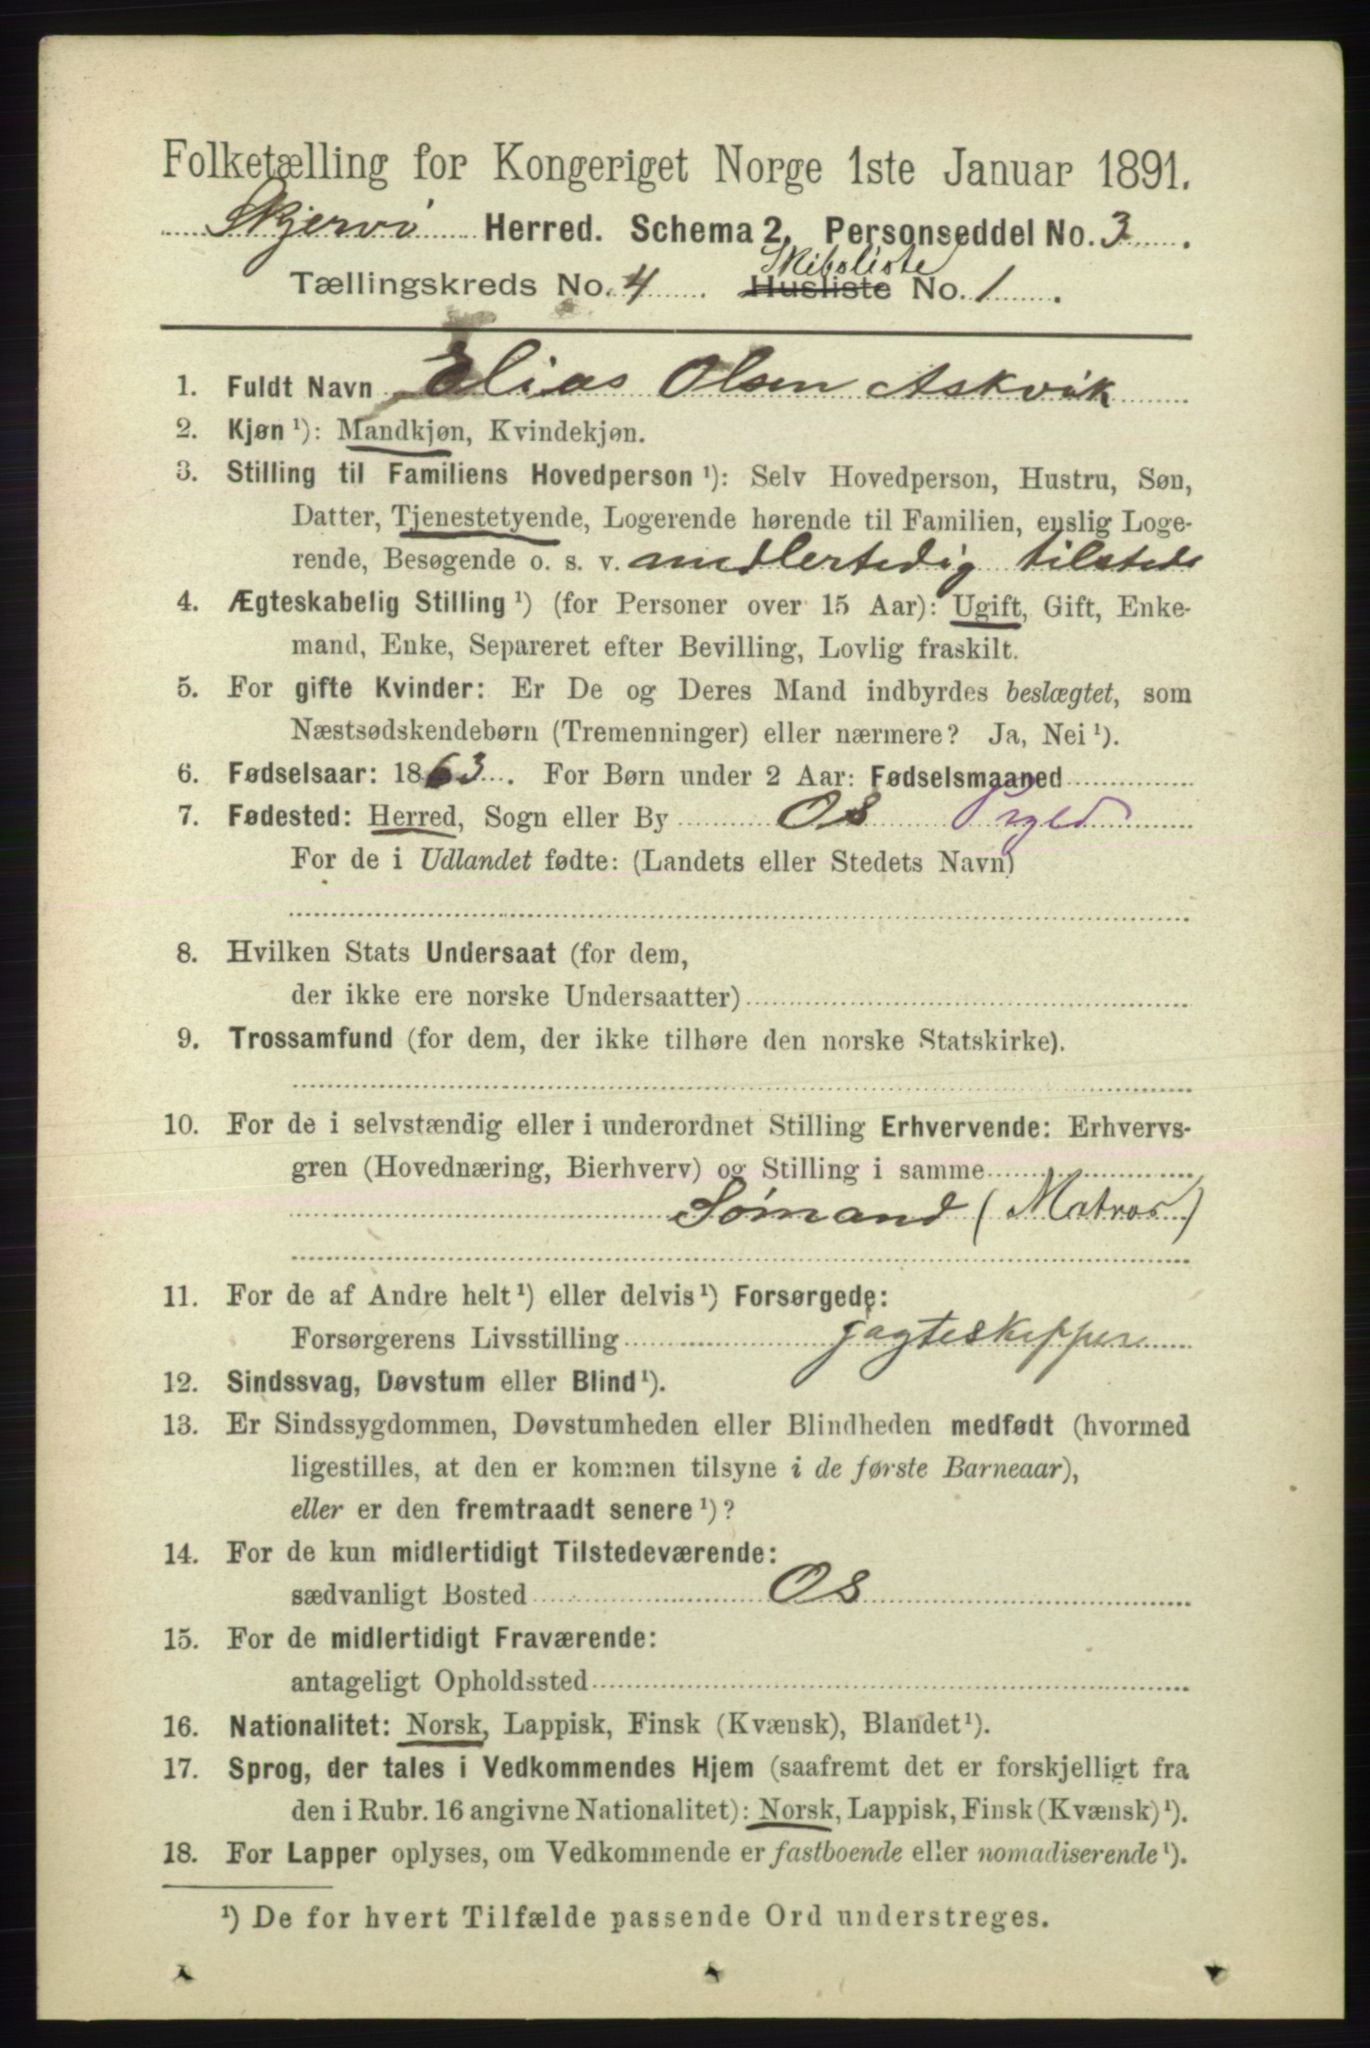 Folketælling for Kongeriget Norge 1ste Januar 1891.
Skjervö Herred. Schema 2. Personseddel No. 3.
Skibsliste
Tællingskreds No. 4. Husliste No. 1.
1. Fuldt Navn Elias Olsen Askvik
2. Kjøn ¹): Mandkjøn, Kvindekjøn.
3. Stilling til Familiens Hovedperson ¹): Selv Hovedperson, Hustru, Søn,
Datter, Tjenestetyende, Logerende hørende til Familien, enslig Loge-
rende, Besøgende o. s. v. medlertedig tilstede
4. Ægteskabelig Stilling ¹) (for Personer over 15 Aar): Ugift, Gift, Enke-
mand, Enke, Separeret efter Bevilling, Lovlig fraskilt.
5. For gifte Kvinder: Er De og Deres Mand indbyrdes beslægtet, som
Næstsødskendebørn (Tremenninger) eller nærmere? Ja, Nei ¹).
6. Fødselsaar: 1863. For Børn under 2 Aar: Fødselsmaaned
7. Fødested: Herred, Sogn eller By Os
For de i Udlandet fødte: (Landets eller Stedets Navn)
8. Hvilken Stats Undersaat (for dem,
der ikke ere norske Undersaatter)
9. Trossamfund (for dem, der ikke tilhøre den norske Statskirke).
10. For de i selvstændig eller i underordnet Stilling Erhvervende: Erhvervs-
gren (Hovednæring, Bierhverv) og Stilling i samme
Sömand (Matros)
11. For de af Andre helt ¹) eller delvis ¹) Forsørgede:
Forsørgerens Livsstilling jagteskipper
12. Sindssvag, Døvstum eller Blind ¹).
13. Er Sindssygdommen, Døvstumheden eller Blindheden medfødt (hvormed
ligestilles, at den er kommen tilsyne i de første Barneaar),
eller er den fremtraadt senere ¹)?
14. For de kun midlertidigt Tilstedeværende:
sædvanligt Bosted Os
15. For de midlertidigt Fraværende:
antageligt Opholdssted
16. Nationalitet: Norsk, Lappisk, Finsk (Kvænsk), Blandet ¹).
17. Sprog, der tales i Vedkommendes Hjem (saafremt det er forskjelligt fra
den i Rubr. 16 angivne Nationalitet): Norsk, Lappisk, Finsk (Kvænsk) ¹).
18. For Lapper oplyses, om Vedkommende er fastboende eller nomadiserende ¹).
¹) De for hvert Tilfælde passende Ord understreges.